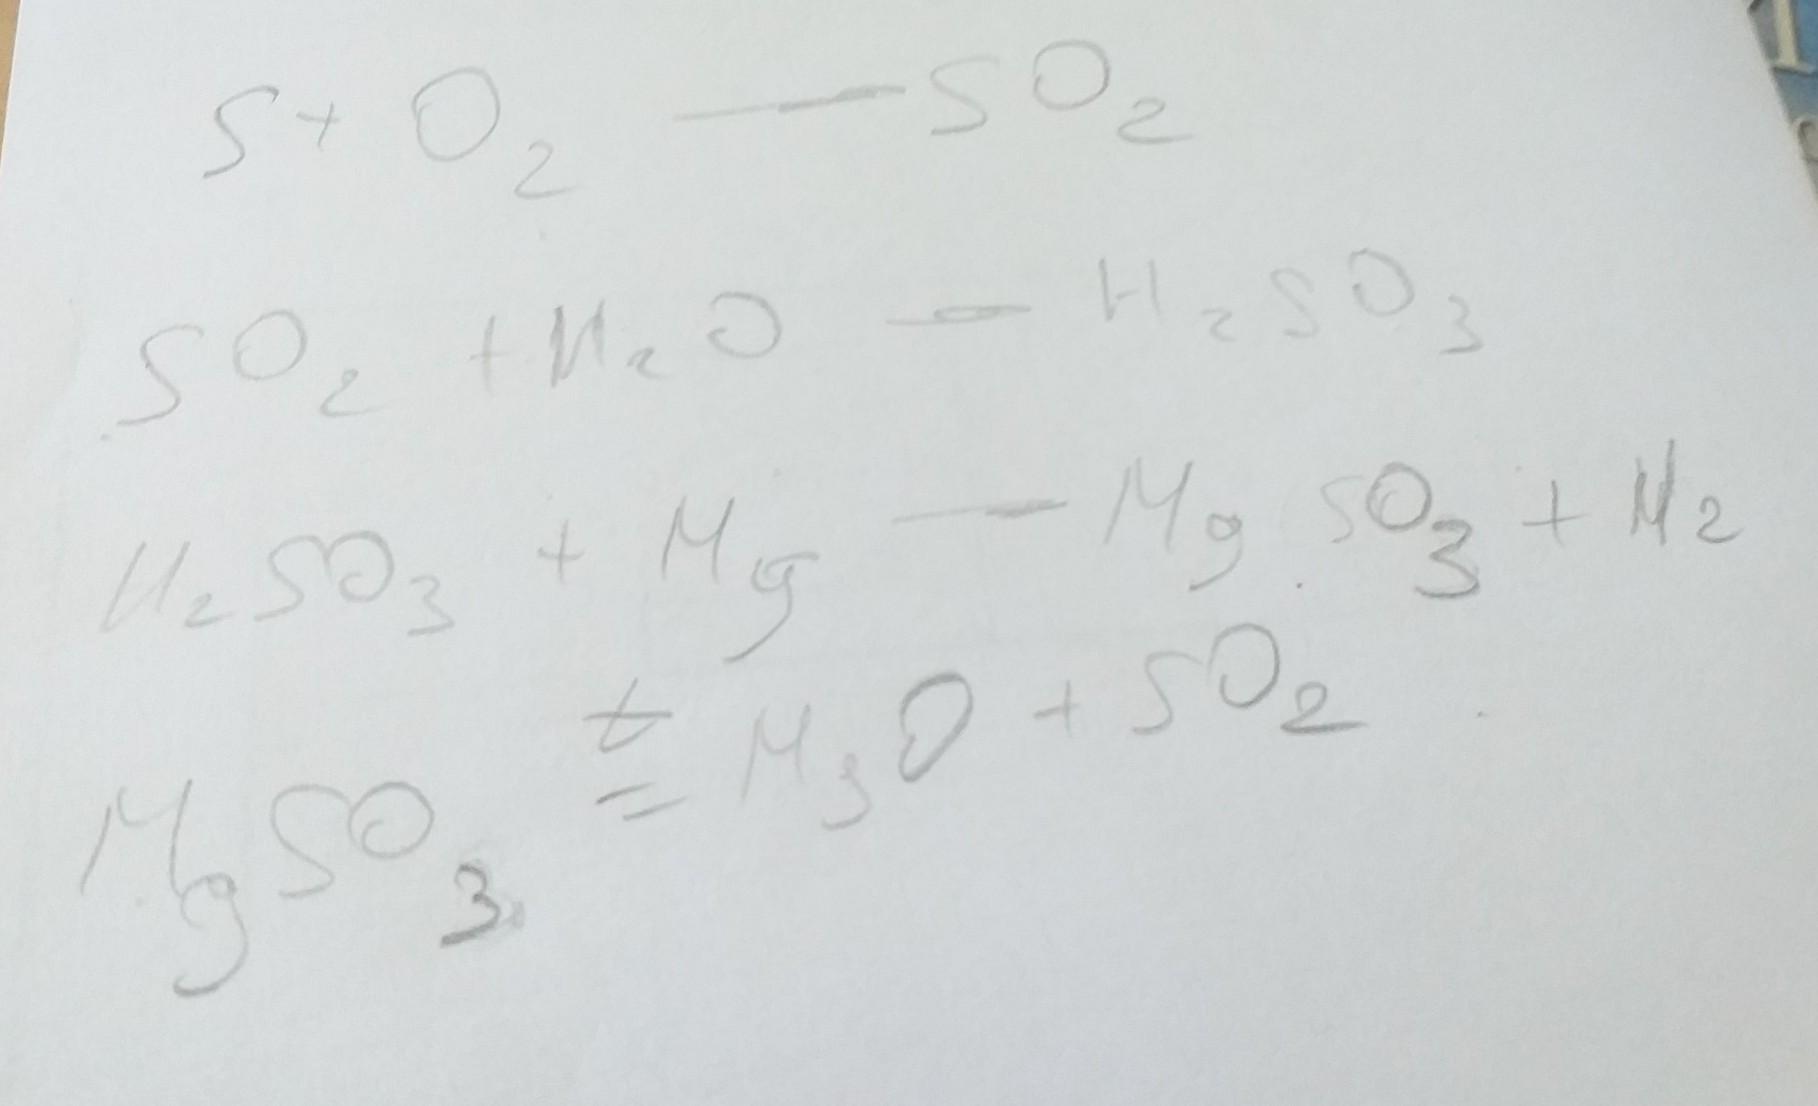 S + O₂ — SO₂
SO₂ + H₂O — H₂SO₃
H₂SO₃ + Mg — MgSO₃ + H₂
MgSO₃ t= MgO + SO₂